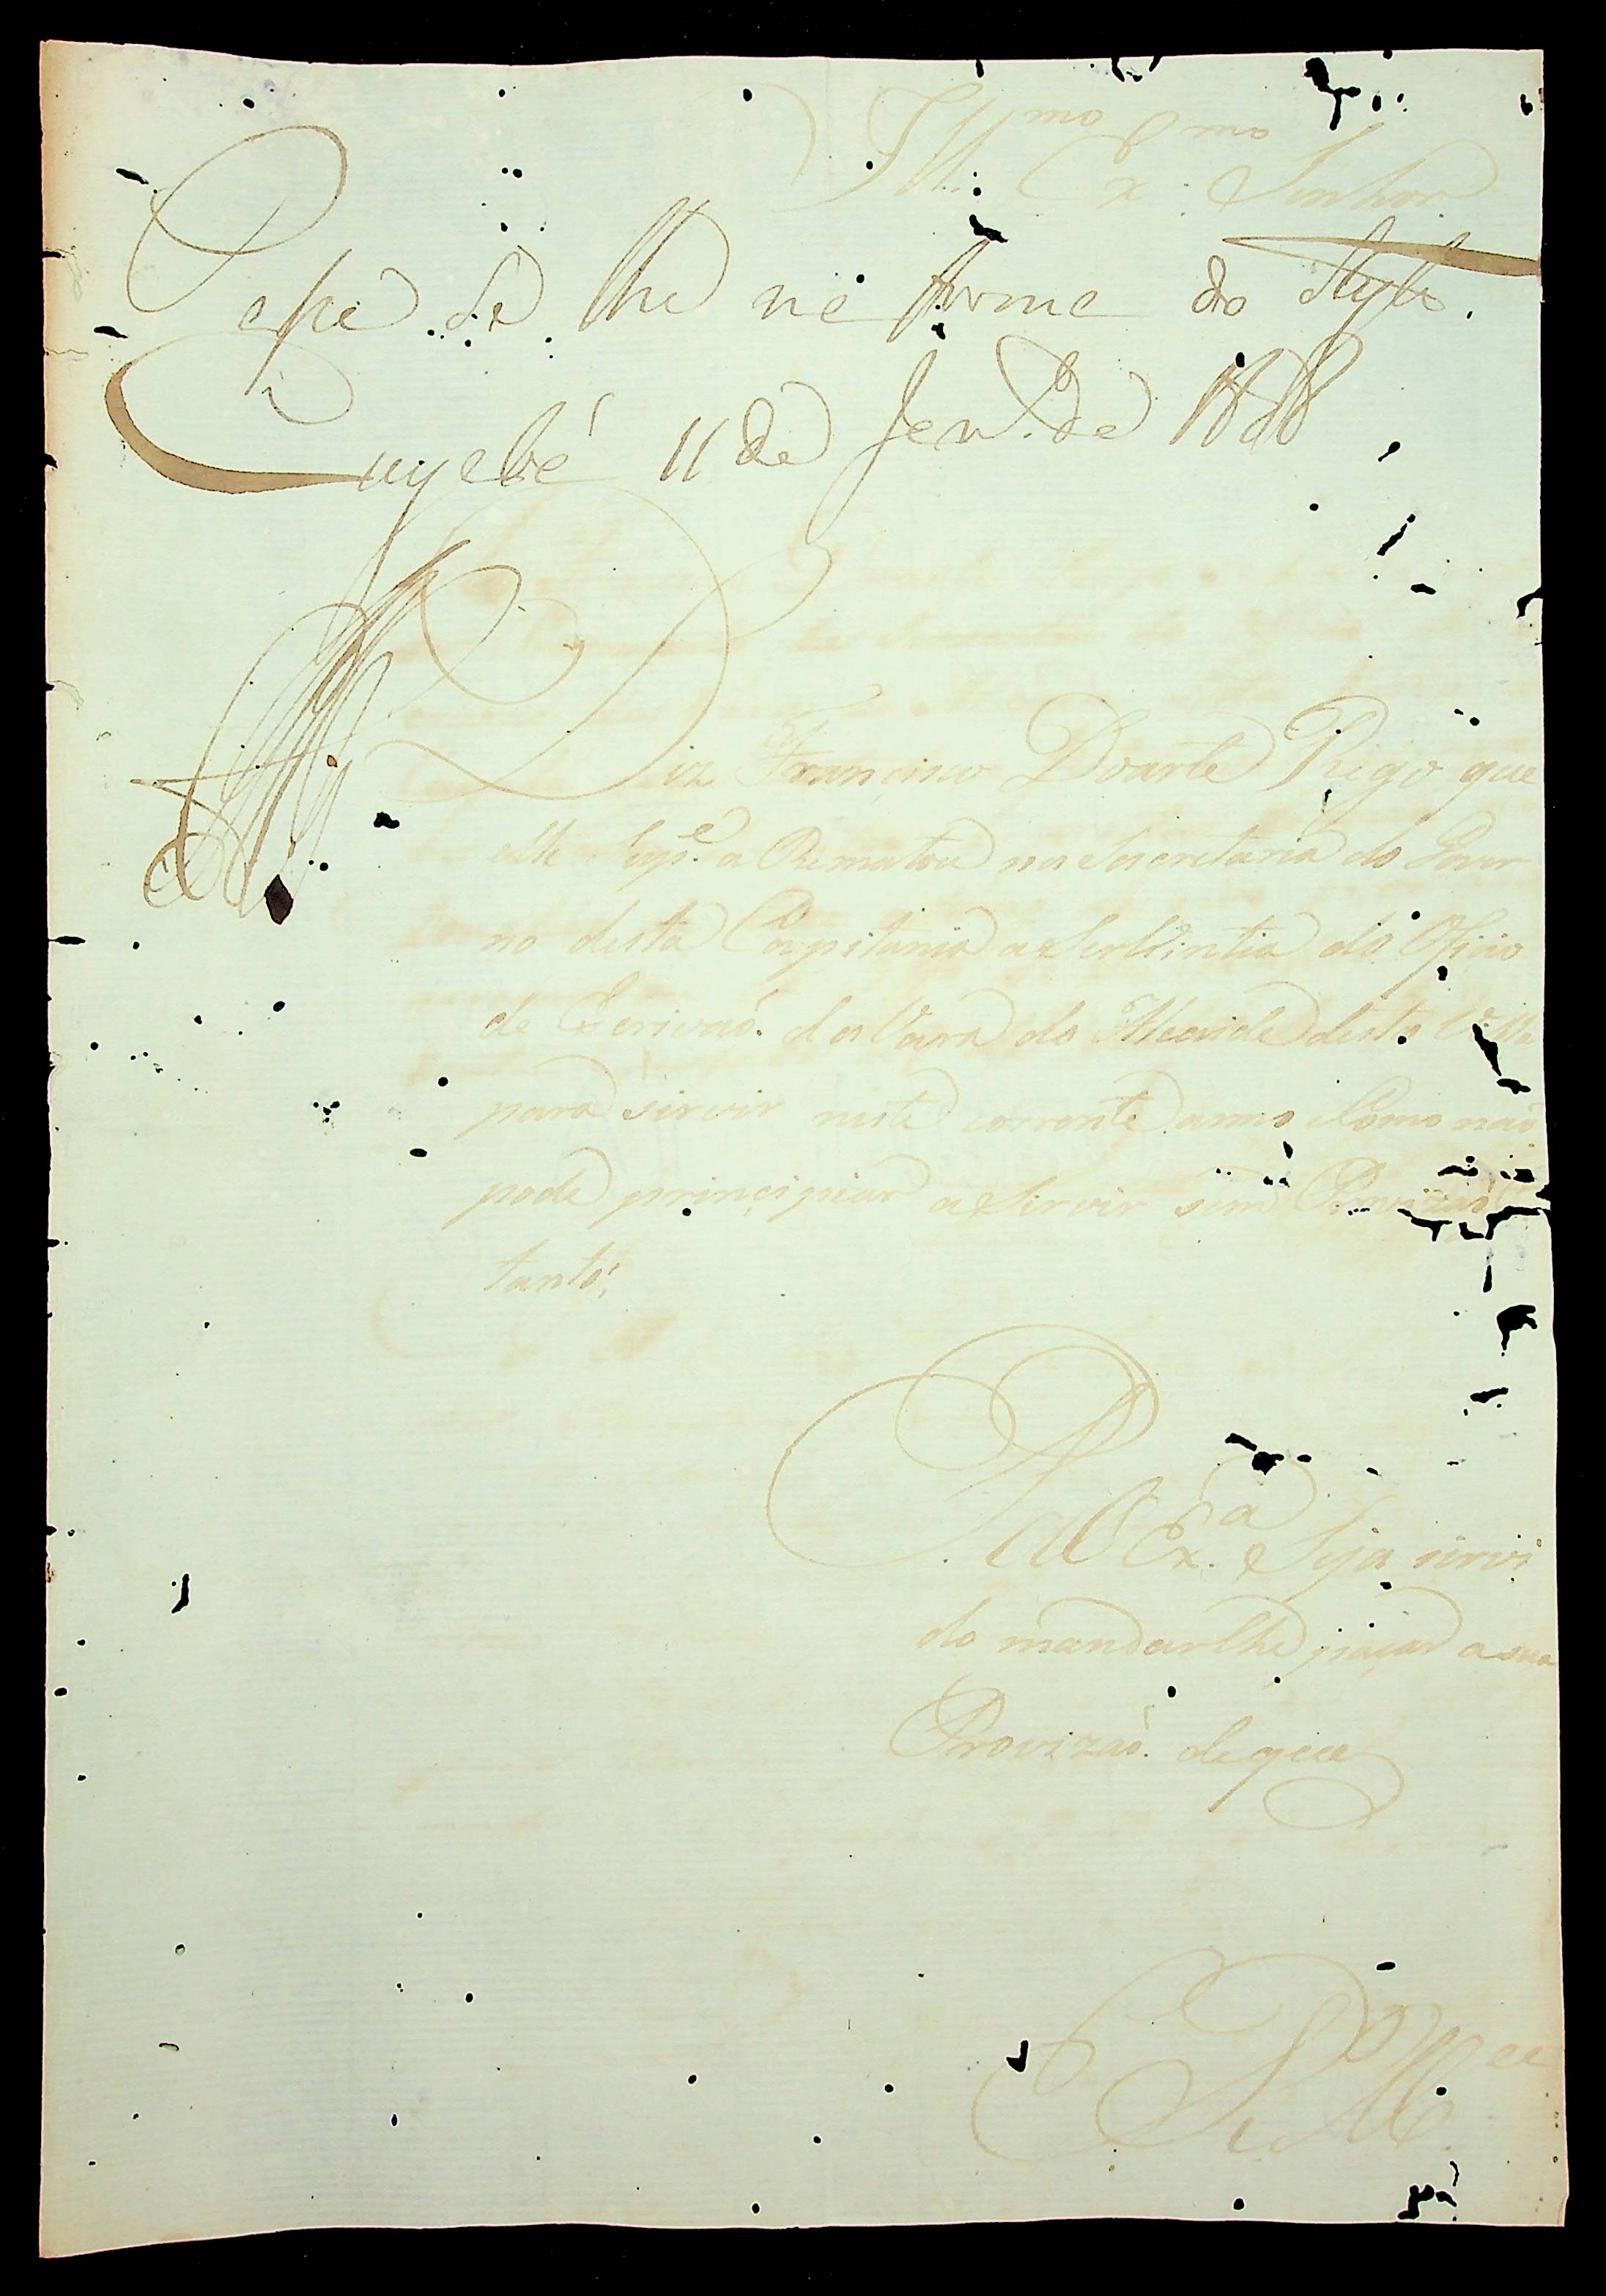 Ill.mo Ex.mo Senhor
Pase se lhe na forma do Stylo.
Cuyabá 11 de Janr.o de 1818
Diz Francisco Doarte Rego que
elle Sup.e a Rematou na Secretaria do Gover
no desta Capitania a Serbintia do Oficio
de Escrivaõ. da Vara do Alcaide desta Villa
para servir neste corrente anno Como naõ
pode principiar a Servir sem Provizaõ
tanto;
P. a V Ex.a Seja servi
do mandarlhe paçar a sua
Provizaõ. de que
E R Mce